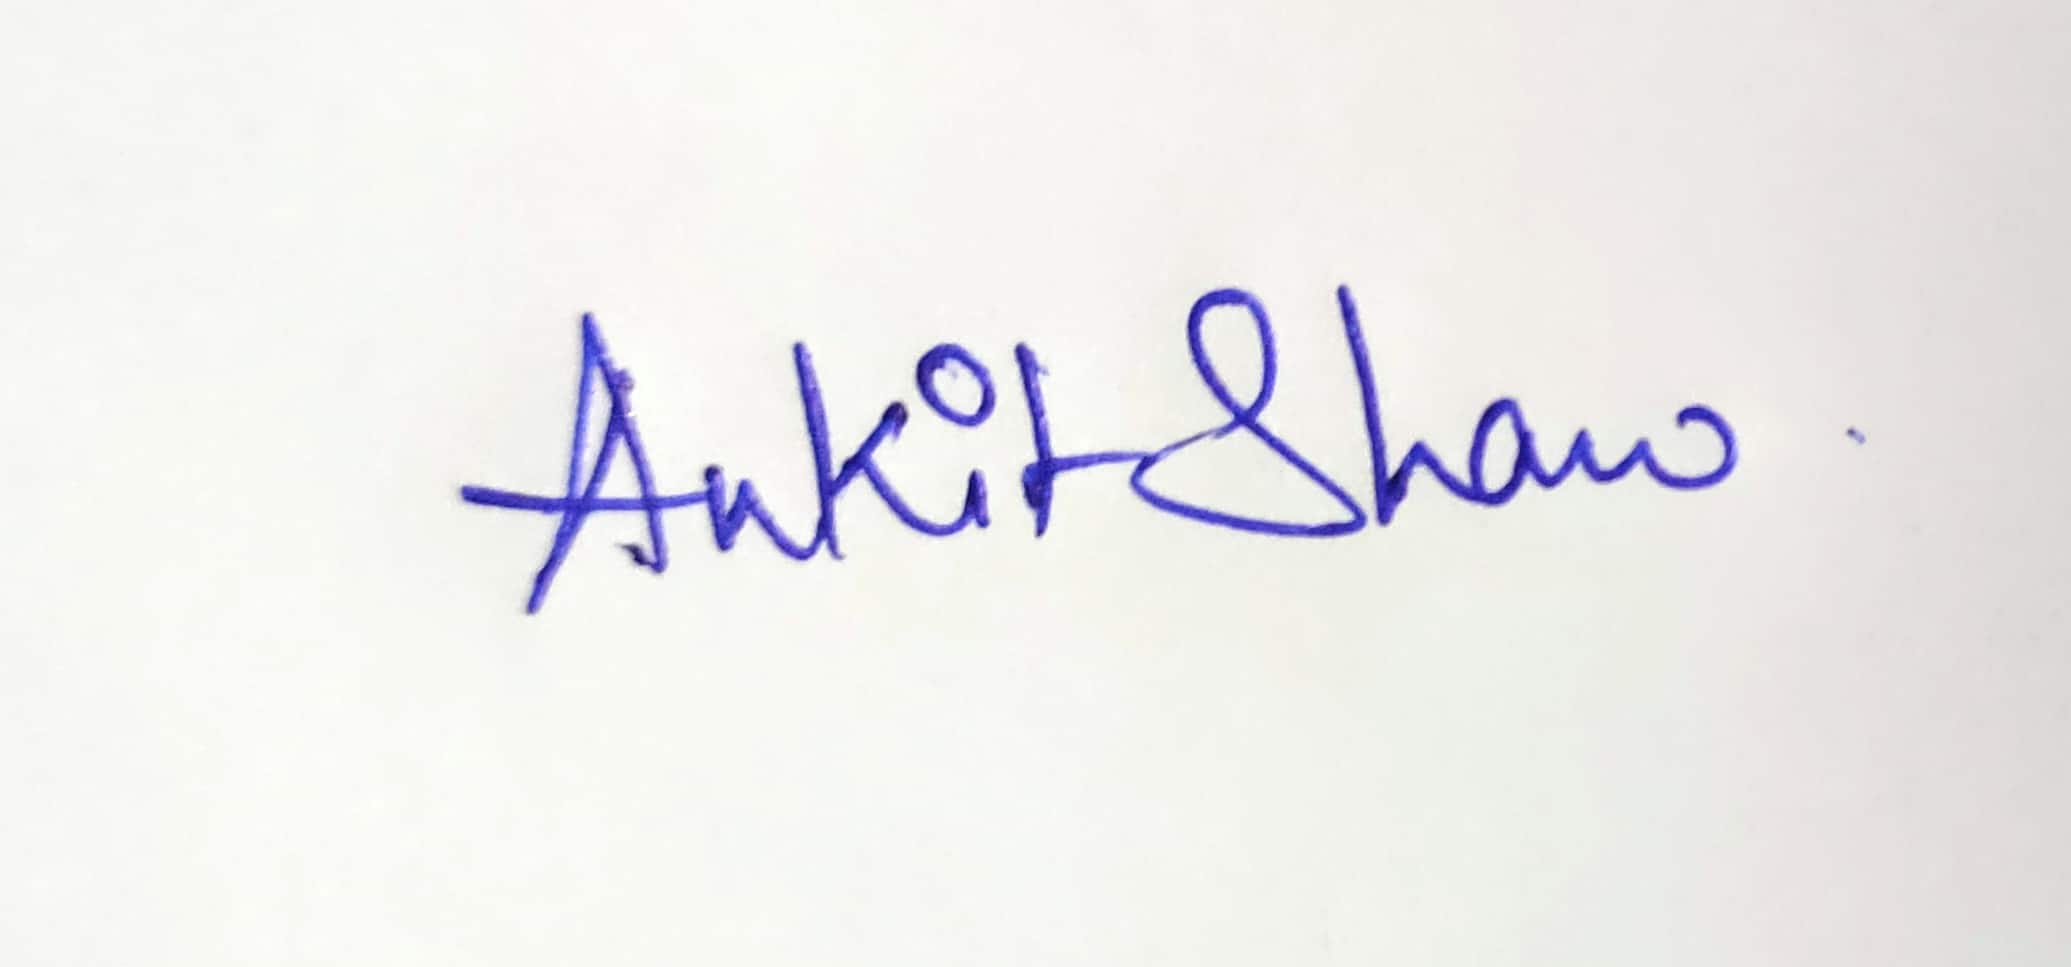 Ankit Shaw.